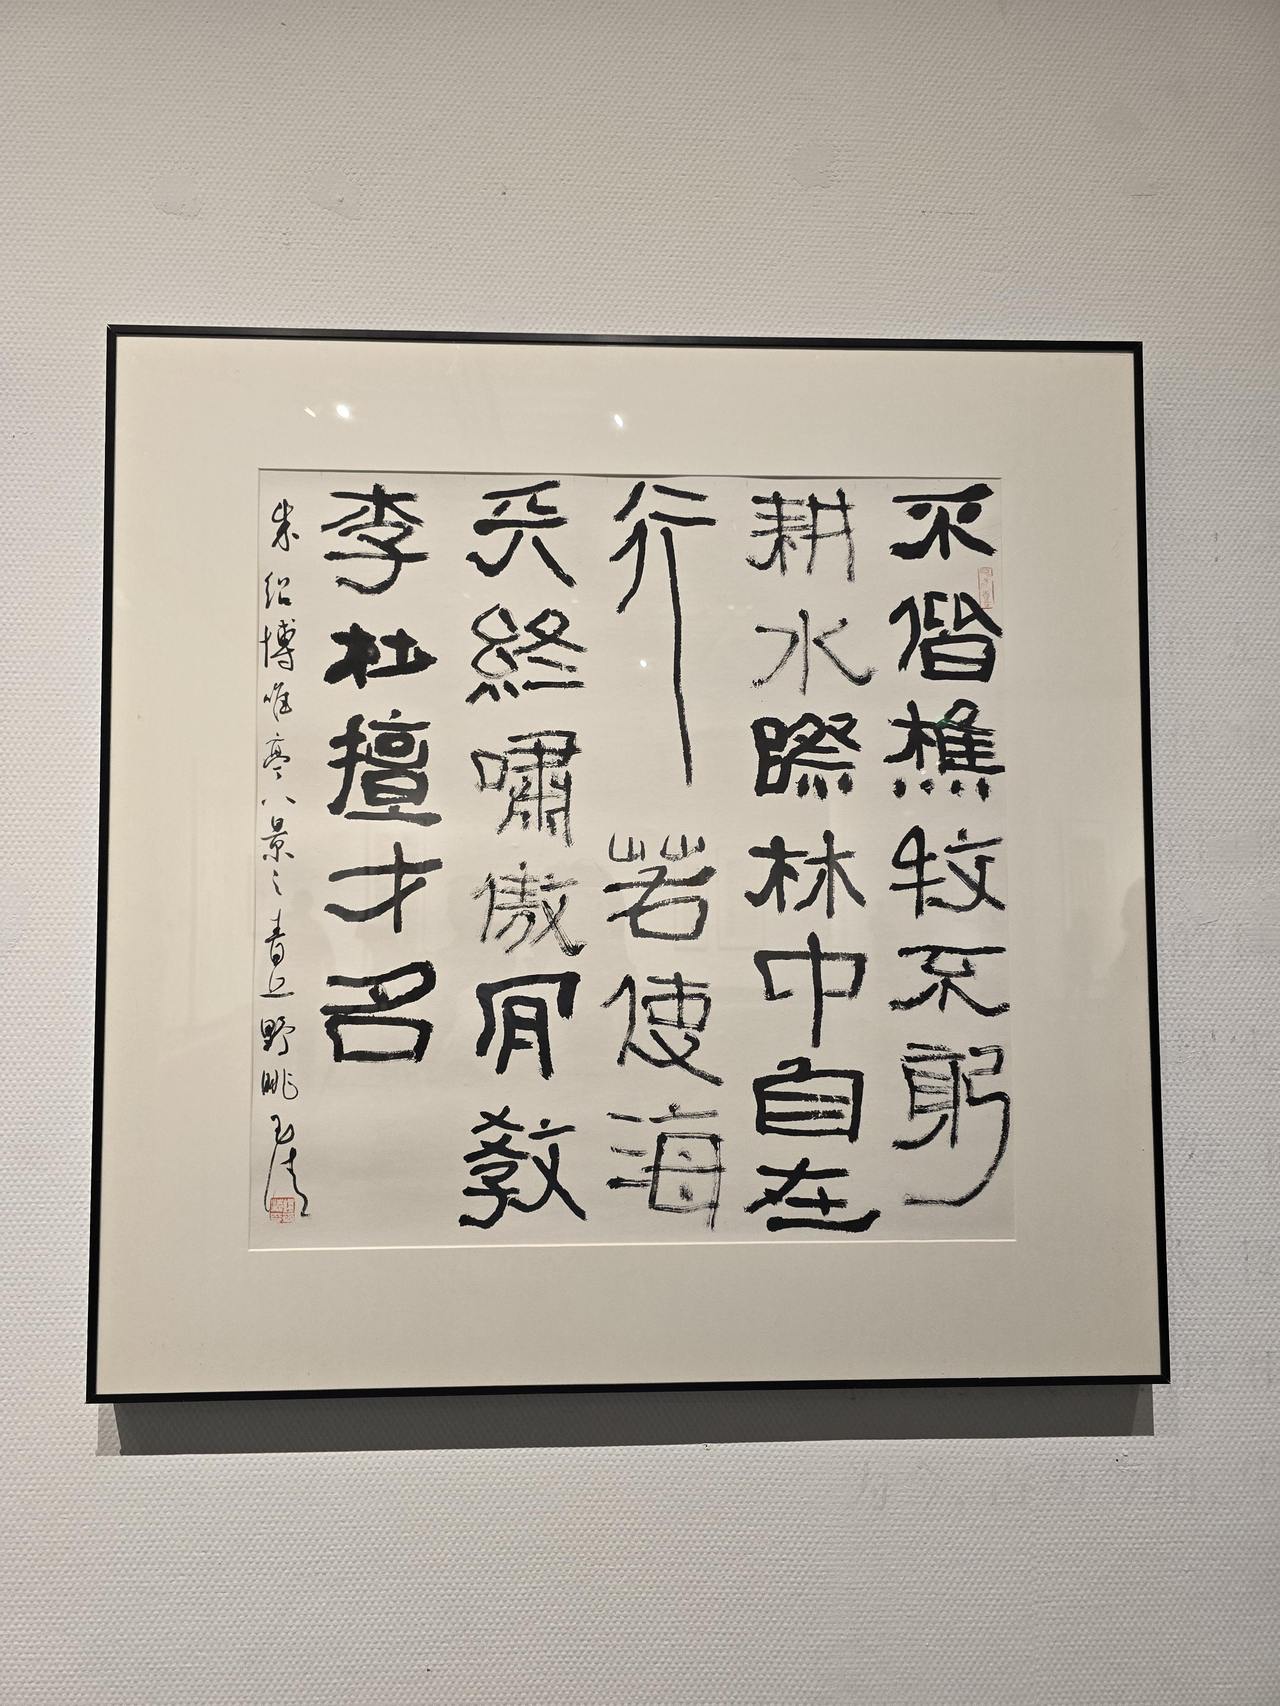 不偕樵牧不躬
耕水際林中自在
行若使海
天終嘯傲肎教
李杜擅才名
朱紹博唯亭八景之青丘野眺